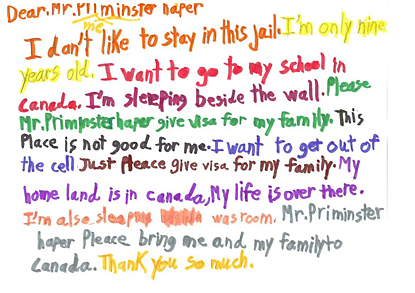 Dear.Mr.Priminster haper
I don't like to stay in this jail.I'm only nine
years old.I want to go to my school in
canada.I'm sleeping beside the wall.Please
Mr.Priminster haper give visa for my family.This
Place is not good for me.I want to get out of
the cell.Just Pleace give visa for my family.My
home land is in canada,My life is over there.
I'm also sleaping wasroom. Mr.Priminster
haper Pleace bring me and my family to
canada. Thank you so much.